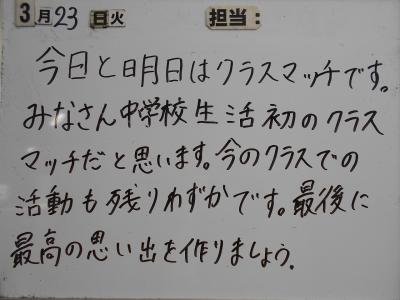 3月23日火 担当:
今日と明日はクラスマッチです。
みなさん中学校生活初のクラス
マッチだと思います。今のクラスでの
活動も残りわずかです。最後に
最高の思い出を作りましょう.